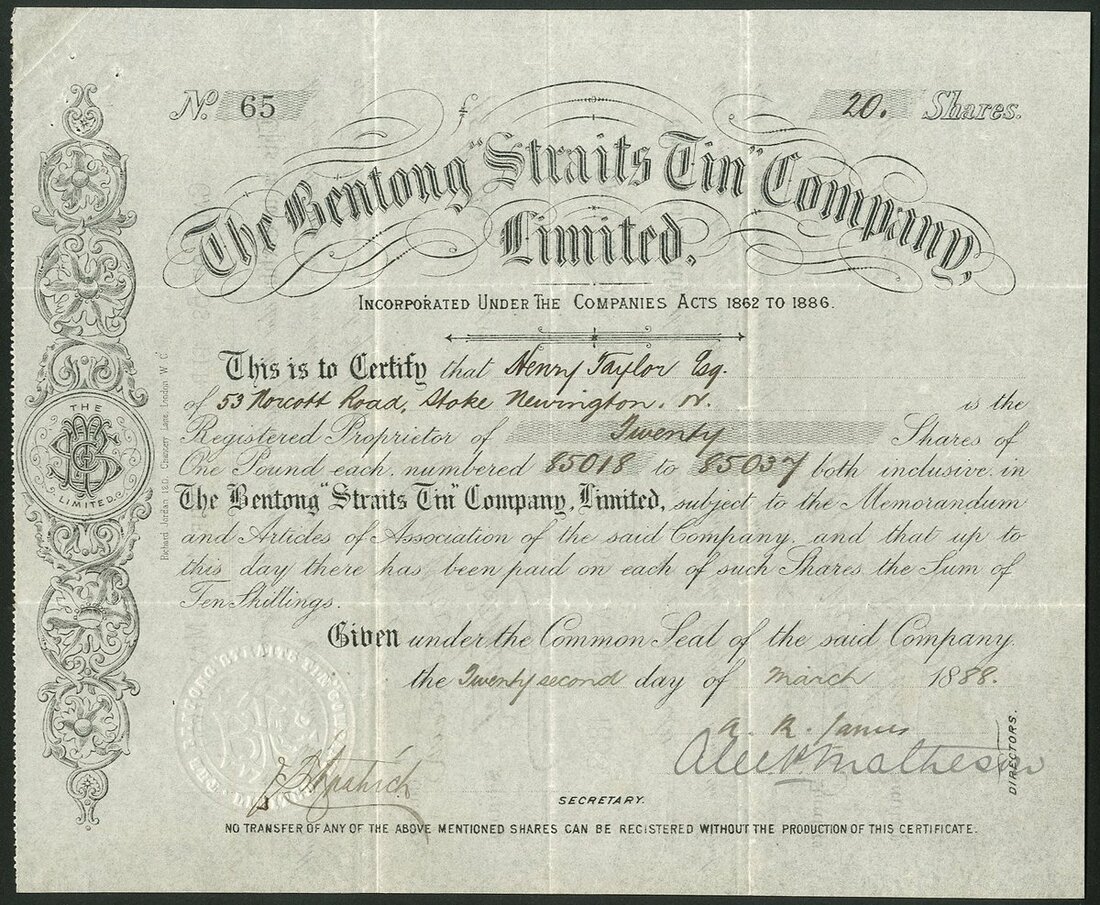 No. 65
20. Shares.
The Bentong "Straits Tin" Company,
Limited,
INCORPORATED UNDER THE COMPANIES ACTS 1862 TO 1886.
This is to Certify that Henry Taylor Esq.
of 53 Norcott Road, Stoke Newington. N. is the
Registered Proprietor of Twenty Shares of
One Pound each, numbered 85018 to 85037 both inclusive in
The Bentong "Straits Tin" Company, Limited, subject to the Memorandum
and Articles of Association of the said Company, and that up to
this day there has been paid on each of such Shares the Sum of
Ten Shillings.
Given under the Common Seal of the said Company.
the Twenty second day of March 1888.
A. R. James
Matheson
DIRECTORS.
SECRETARY.
NO TRANSFER OF ANY OF THE ABOVE MENTIONED SHARES CAN BE REGISTERED WITHOUT THE PRODUCTION OF THIS CERTIFICATE.
THE
LIMITED.
Richard Jordan, 120, Chancery Lane, London W C